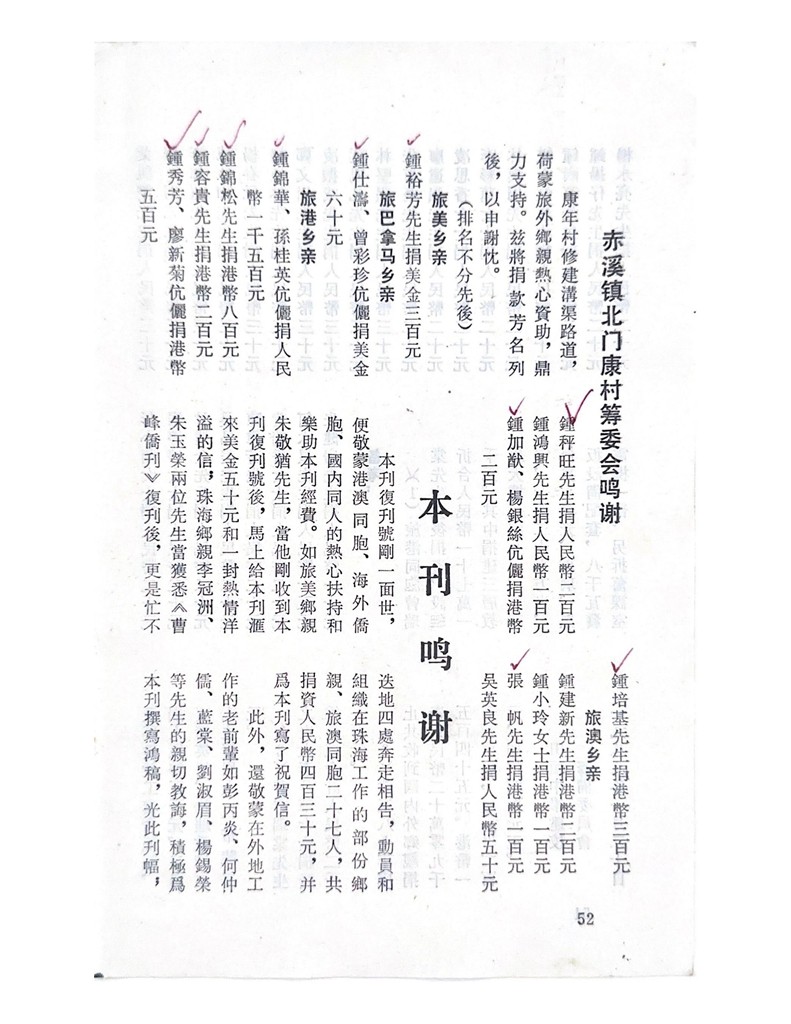 赤溪镇北门康村筹委会鸣谢
康年村修建溝渠路道，
荷蒙旅外鄉親熱心資助，鼎
力支持。兹將捐款芳名列
後，以申謝忱。
（排名不分先後）
旅美乡亲
鍾裕芳先生捐美金三百元
旅巴拿马乡亲
鍾仕濤、曾彩珍伉儷捐美金
六十元
旅港乡亲
鍾錦華、孫桂英伉儷捐人民
幣一千五百元
鍾錦松先生捐港幣八百元
鍾容貴先生捐港幣二百元
鍾秀芳、廖新菊伉儷捐港幣
五百元
鍾秤旺先生捐人民幣二百元
鍾鴻興先生捐人民幣一百元
鍾加猷、楊銀絲伉儷捐港幣
二百元
鍾培基先生捐港幣三百元
旅澳乡亲
鍾建新先生捐港幣二百元
鍾小玲女士捐港幣一百元
張　帆先生捐港幣一百元
吴英良先生捐人民幣五十元
本刊鸣谢
本刊復刊號剛一面世，
便敬蒙港澳同胞、海外僑
胞、國内同人的熱心扶持和
樂助本刊經費。如旅美鄉親
朱敬猶先生，當他剛收到本
刊復刊號後，馬上給本刊滙
來美金五十元和一封熱情洋
溢的信，珠海鄉親李冠洲、
朱玉榮兩位先生當獲悉《曹
峰僑刊》復刊後，更是忙不
迭地四處奔走相告，動員和
組織在珠海工作的部份鄉
親、旅澳同胞二十七人，共
捐資人民幣四百三十元，并
爲本刊寫了祝賀信。
此外，還敬蒙在外地工
作的老前輩如彭丙炎、何仲
儒、藍棠、劉淑眉、楊錫榮
等先生的親切教誨，積極爲
本刊撰寫鴻稿，光此刊幅，
52